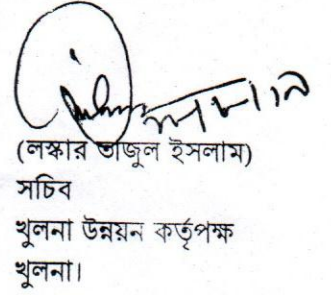 (লস্কার তাজুল ইসলাম)
সচিব
খুলনা উন্নয়ন কর্তৃপক্ষ
খুলনা।